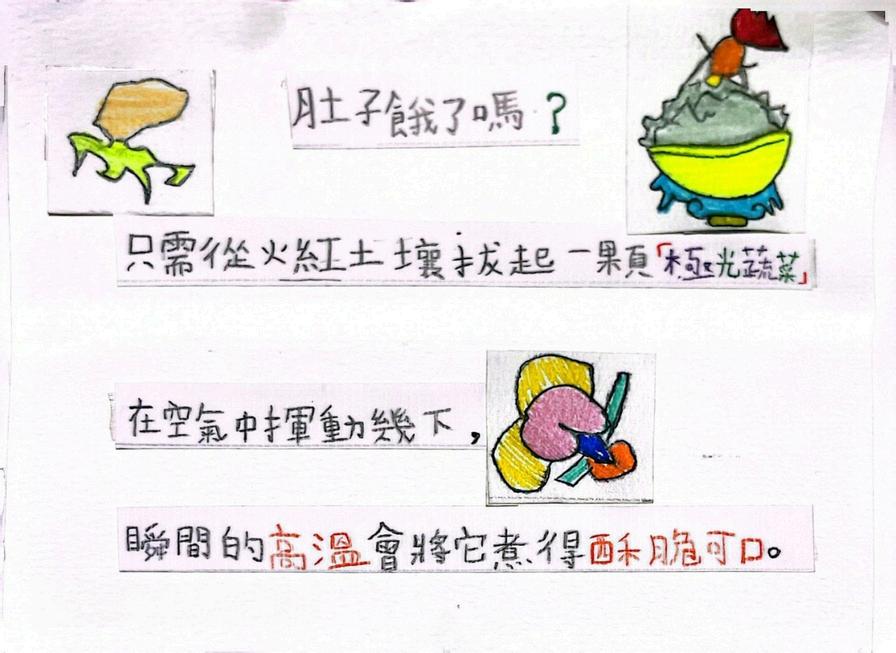 肚子餓了嗎?
只需從火紅土壤拔起一顆「極光蔬菜」
在空氣中揮動幾下,
瞬間的高溫會將它煮得酥脆可口。